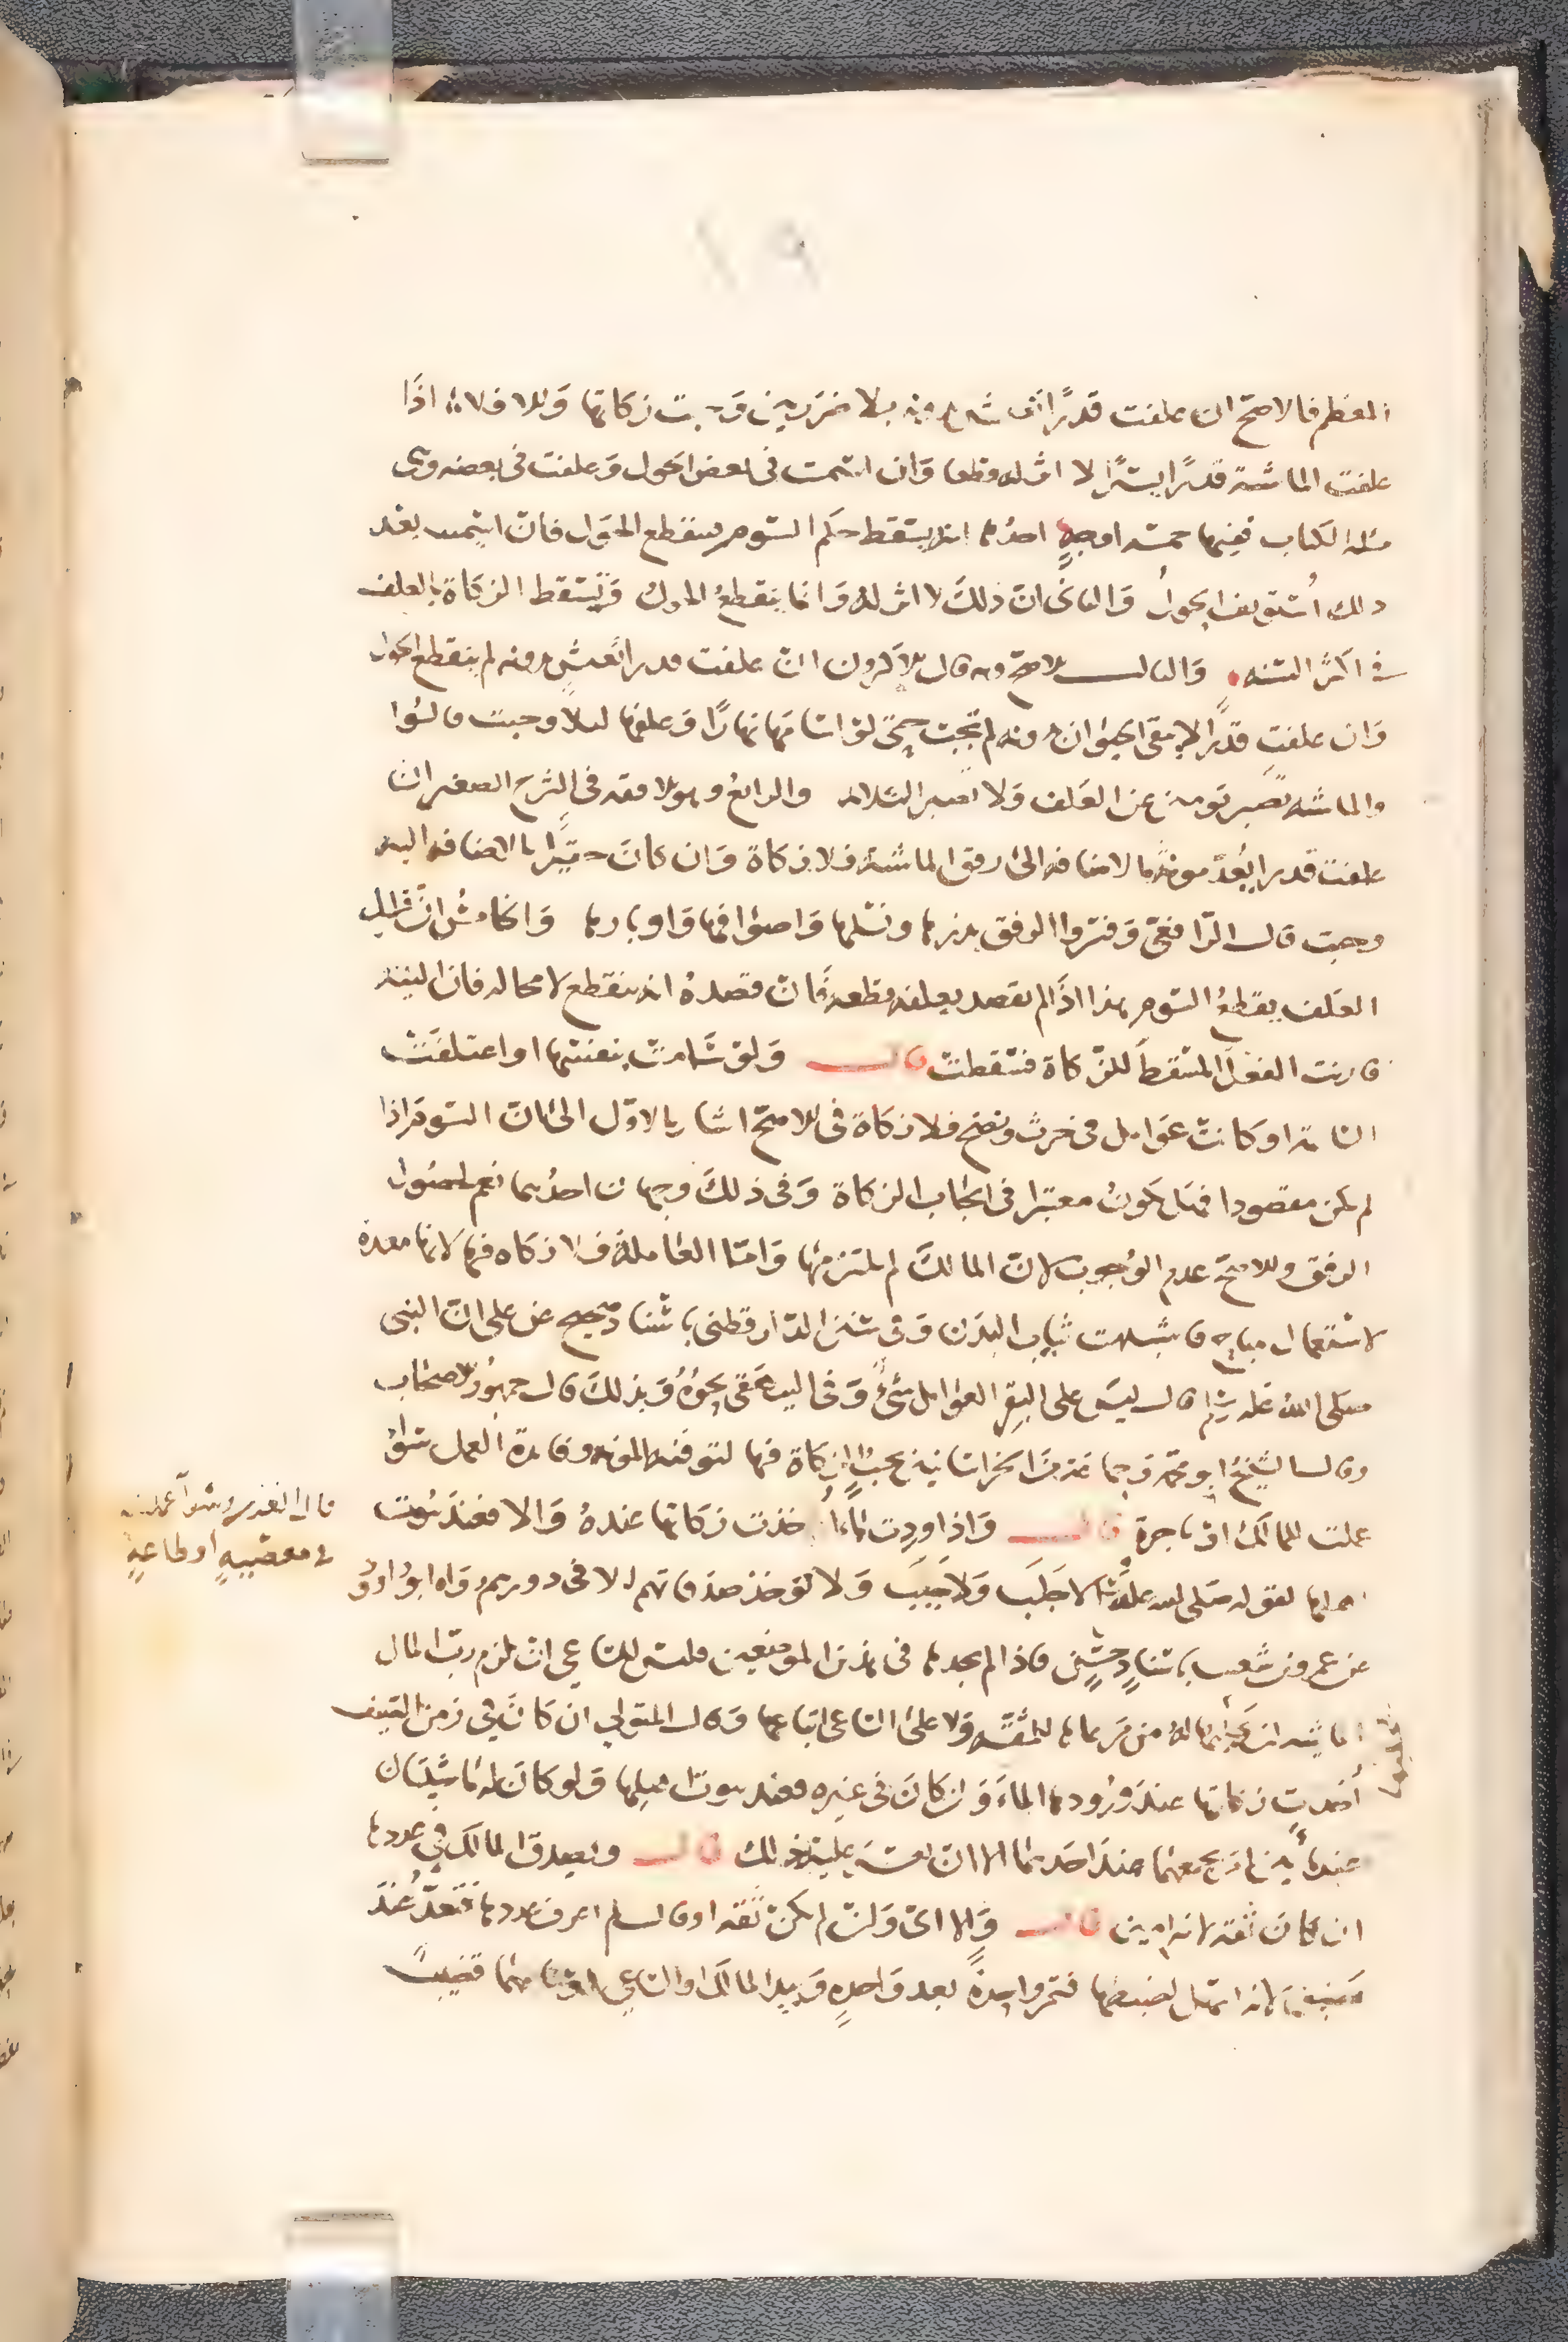 المعظم فالاصح ان علفت قدرًا تعيش بدونه بلا ضرر بين وجبت زكاتها والا فلا اذا
علفت الماشية قدرًا يسيرًا لا اثر له قطعا وان اسيمت فى بعض الحول وعلفت فى بعضه وهى
مسئلة الكتاب ففيها خمسة اوجهٍ احدها انه يسقط حكم السوم وينقطع الحول فان اسيمت بعد
ذلك استؤنف الحول والثانى ان ذلك لا اثر له وانما ينقطع الحول وتسقط الزكاة بالعلف
فى اكثر السنة والثالث الاصح وبه قال الاكثرون ان علفت قدرا تعيش دونه لم ينقطع الحول
وان علفت قدرًا لا يبقى الحيوان دونه لم تجب حتى لو اسامها نهارًا وعلفها ليلا وجبت قالوا
والماشية تصبر يومين عن العلف ولا تصبر الثلاثة والرابع وهو الافقه فى الشرح الصغير ان
علفت قدرا يعد مؤنة بالاضافة الى رفق الماشية فلا زكاة وان كان حقيرا بالاضافة اليه
وجبت قال الرافعى وفسروا الرفق بدرها ونسلها واصوافها واوبارها والخامس ان قليل
العلف يقطع السوم هذا اذا لم يقصد بعلفه قطعه فان قصده انه ينقطع لا محالة فان النية
قارنت الفعل المسقط للزكاة فسقطت قال ولو سامت بنفسها او اعتلفت
السائمة او كانت عوامل فى حرث ونضح فلا زكاة فى الاصح اشار بالاول الى ان السوم اذا
لم يكن مقصودا هل يكون معتبرا فى ايجاب الزكاة وفى ذلك وجهان احدهما نعم لحصول
الرفق والاصح عدم الوجوب لان المالك لم يلتزمها واما العاملة فلا زكاه فيها لانها معدة
لاستعمال مباح فاشبهت ثياب البدن وفى سنن الدارقطنى باسناد صحيح عن على ان النبى
صلى الله عليه وسلم قال ليس على البقر العوامل شىء وفى البيهقى نحوه وبذلك قال جمهور الاصحاب
وقال الشيخ ابو محمد وجماعة من الخراسانية يجب الزكاة فيها لتوفير المؤنة وفائدة العمل سواء
عملت للمالك او باجرة قال واذا وردت ماء اخذت زكاتها عنده والا فعند بيوت
اهلها لقوله صلى الله عليه وسلم لا جلب ولا جنب ولا تؤخذ صدقاتهم الا فى دورهم رواه ابو داود
عن عمرو بن شعيب باسناد حسن فاذا لم يجدها فى هذين الموضعين فليس للساعى ان يلزم رب المال
الماشية ان يجمعها له من مرعاها للمشقة ولا على الساعى اتباعها وقال المتولى ان كان فى زمن الصيف
أخذت زكاتها عند ورودها الماء وان كان فى غيره فعند بيوت اهلها ولو كان له ماشيتان
عند ماءين امر بجمعهما عند احدهما الا ان يعسر عليه ذلك قال ويصدق المالك فى عددها
ان كان ثقة لانه امين قال والا اى وان لم يكن ثقة او قال لم اعرف عددها فتعد عند
مضيق لانه اسهل لضبطها فتمر واحدة بعد واحدة وبيد المالك او الساعى او نائبهما قضيب
قال البغوى وسواء عملت
فى معصية أو طاعة